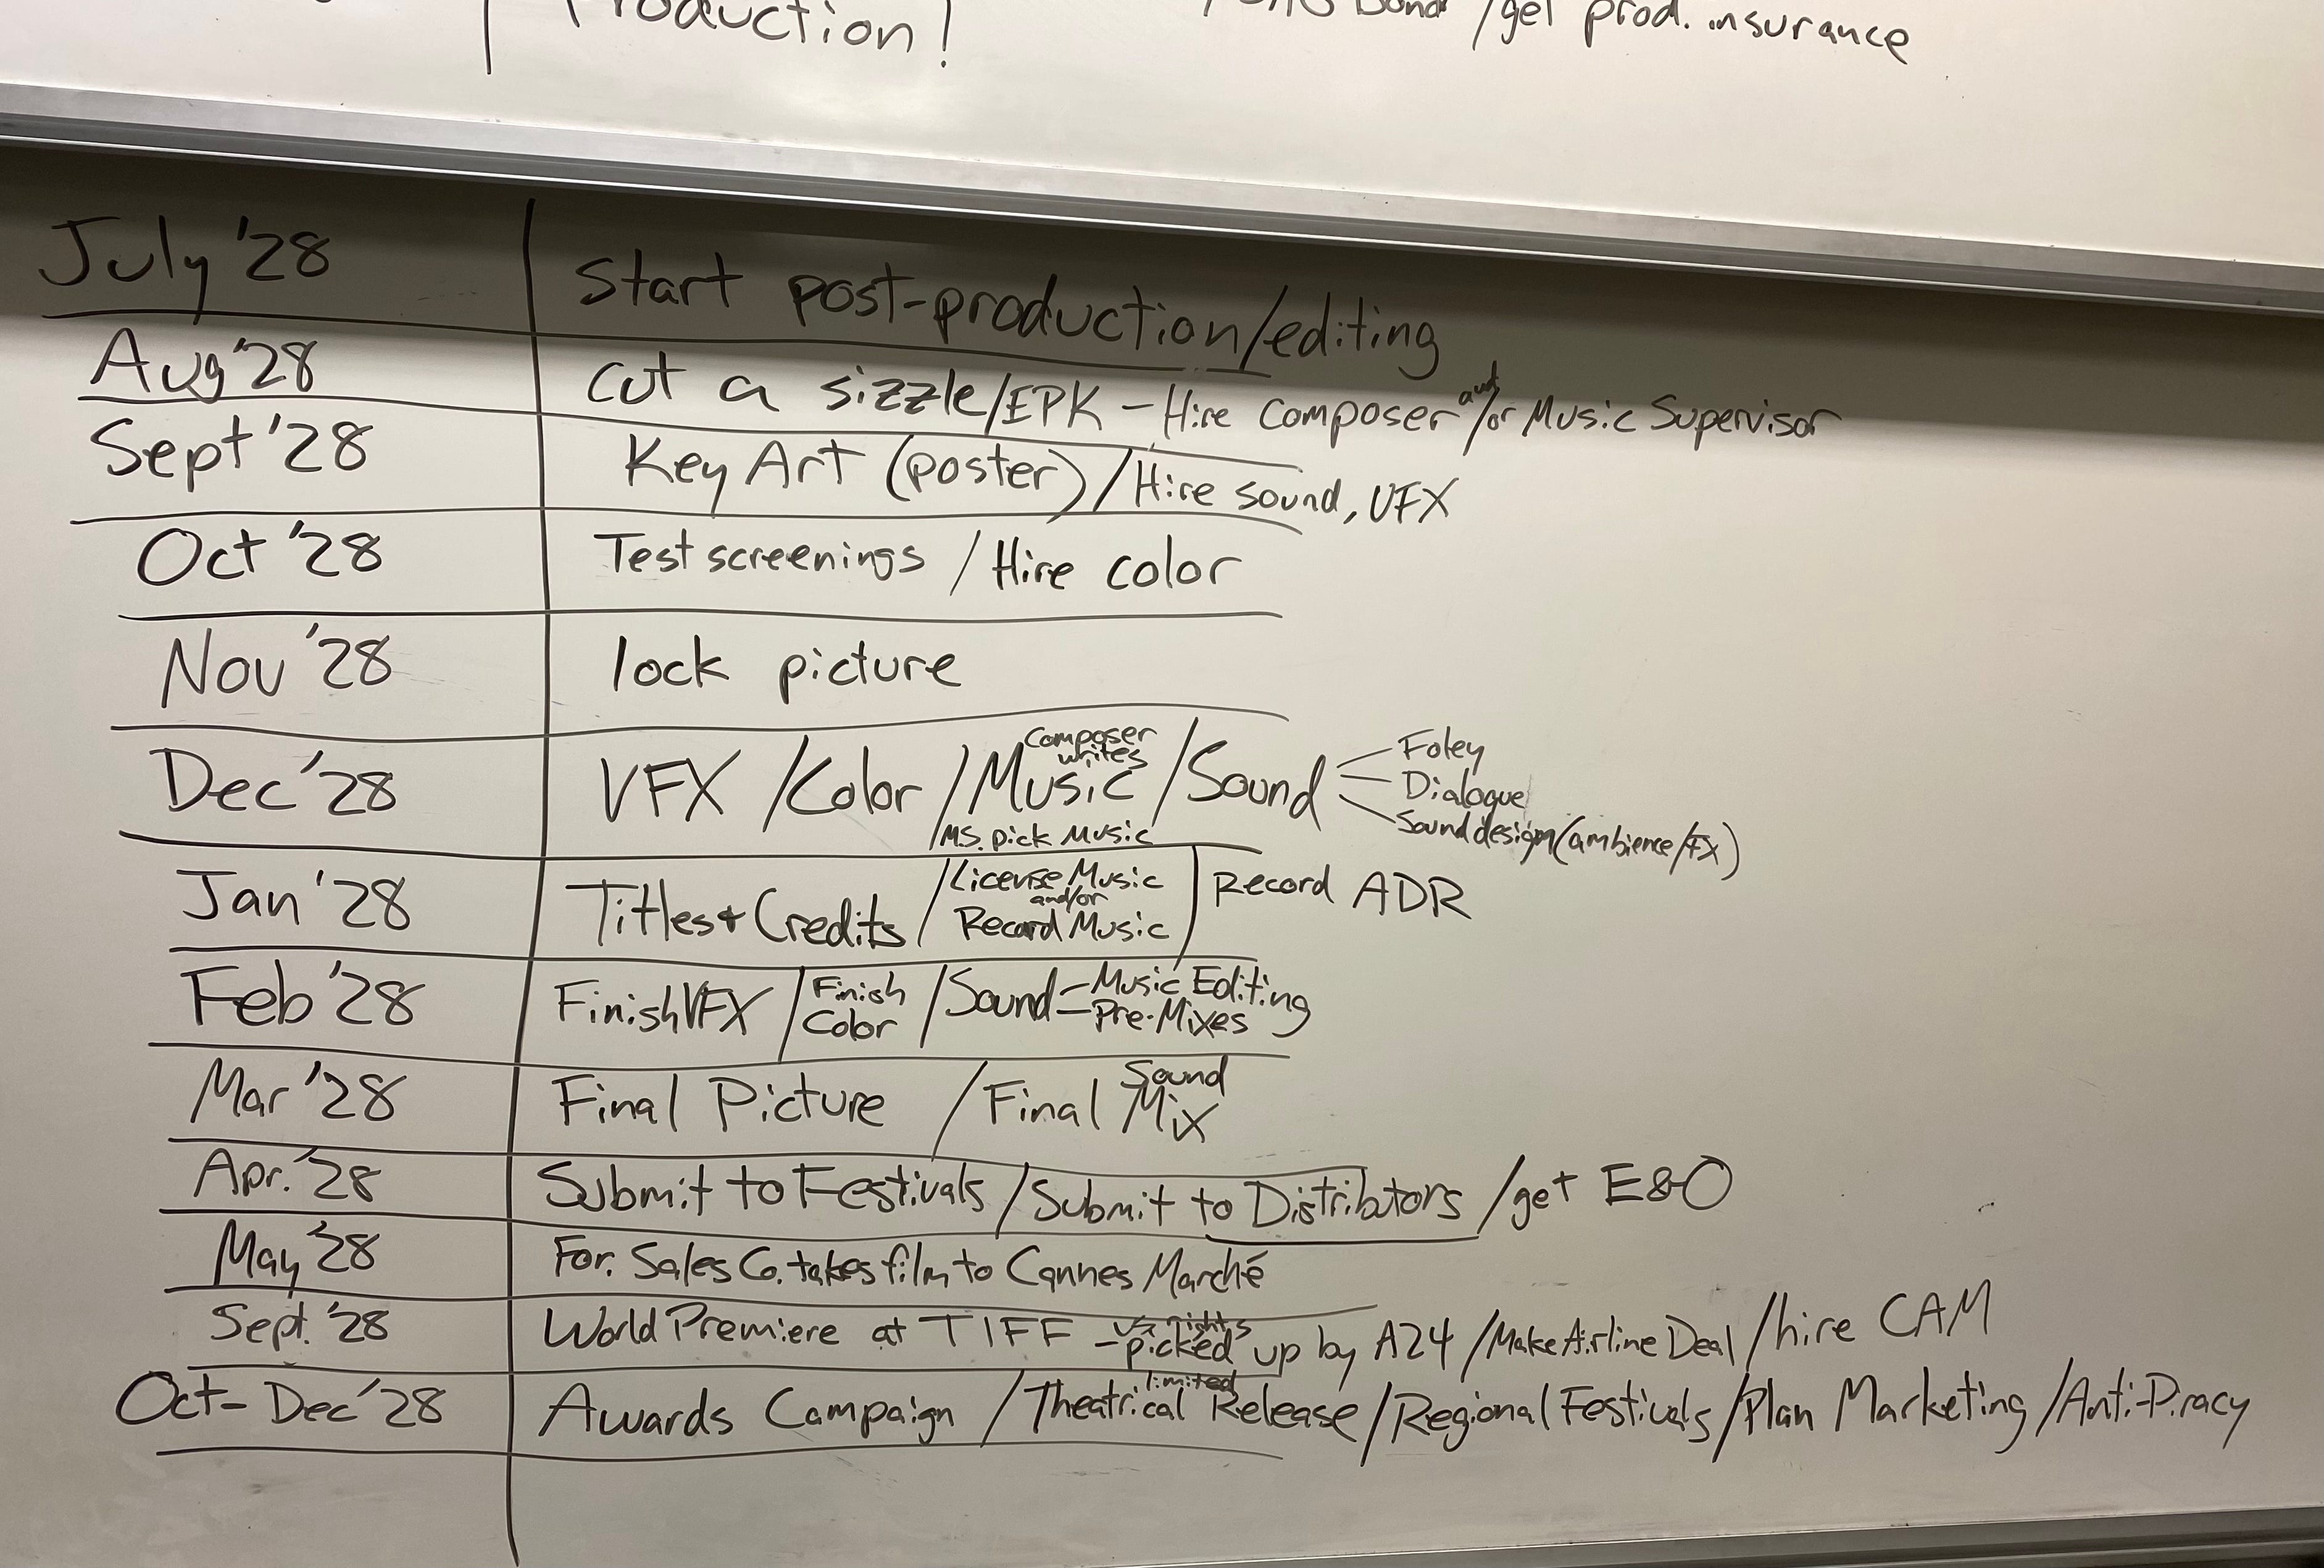 Production!
Bond /get prod. insurance
July '28 Start post-production/editing
Aug '28 cut a sizzle/EPK - Hire Composer and/or Music Supervisor
Sept '28 Key Art (poster) / Hire sound, VFX
Oct '28 Test screenings / Hire color
Nov '28 lock picture
Dec '28 VFX / Color / Composer writes Music / M.S. pick Music / Sound
Foley
Dialogue
Sound design (ambience/FX)
Jan '28 Titles + Credits / License Music and/or Record Music | Record ADR
Feb '28 Finish VFX / Finish Color / Sound = Music Editing
Pre-Mixes
Mar '28 Final Picture / Final Sound Mix
Apr. '28 Submit to Festivals / Submit to Distributors / get E&O
May '28 For. Sales Co. takes film to Cannes Marché
Sept. '28 World Premiere at TIFF - US rights picked up by A24 / Make Airline Deal / hire CAM
Oct - Dec '28 Awards Campaign / limited Theatrical Release / Regional Festivals / Plan Marketing / Anti-Piracy